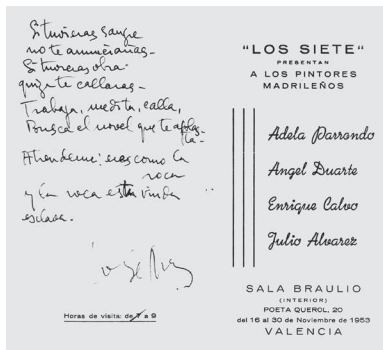 Si tuvieras sangre
no te anunciarías -
Si tuvieras obra
quizá te callaras -
Trabaja, medita, calla,
Busca el nivel que te aplas-
ta -
como la
roca
y la roca es tu viuda
esclava.
Horas de visita: de 7 a 9
"LOS SIETE"
PRESENTAN
A LOS PINTORES
MADRILEÑOS
Adela Parrondo
Angel Duarte
Enrique Calvo
Julio Alvarez
SALA BRAULIO
(INTERIOR)
POETA QUEROL, 20
del 16 al 30 de Noviembre de 1953
VALENCIA